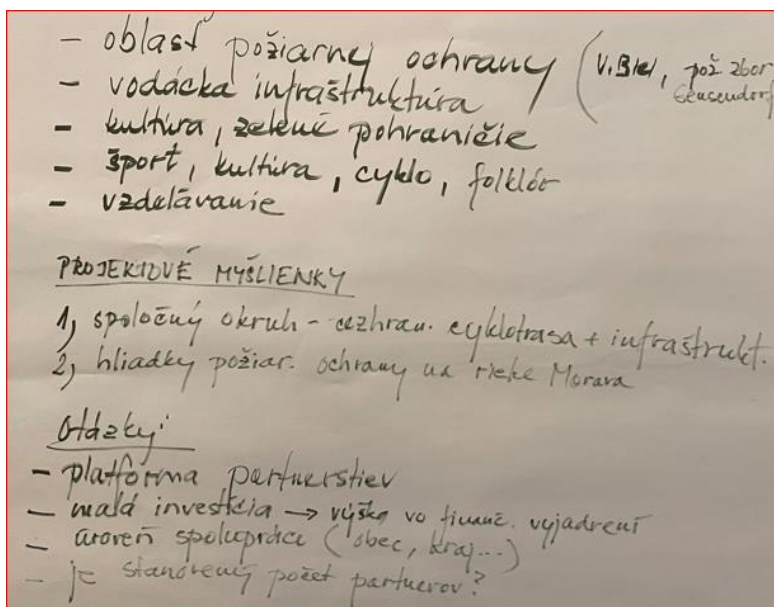 - oblasť požiarnej ochrany (V. Biel, pož zbor
Gensendorf
- vodácka infraštruktúra
- kultúra, zelené pohraničie
- šport, kultúra, cyklo, folklór
- vzdelávanie
PROJEKTOVÉ MYŠLIENKY
1, spoločný okruh - cezhran. cyklotrasa + infraštrukt.
2, hliadky požiar. ochrany na rieke Morava
Otázky:
- platforma partnerstiev
- malá investícia → výška vo finanč. vyjadrení
- úroveň spolupráce (obec, kraj...)
- je stanovený počet partnerov?